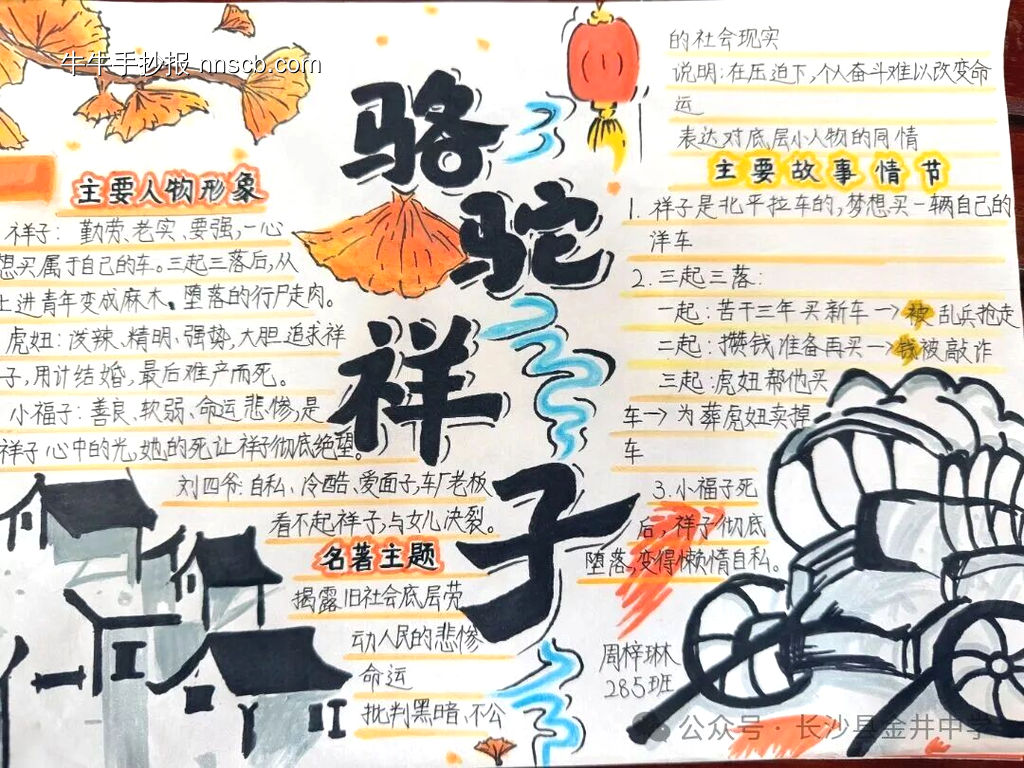 牛牛手抄报 nnscb.com
骆驼祥子
主要人物形象
祥子：勤劳、老实、要强,一心
想买属于自己的车。三起三落后,从
上进青年变成麻木、堕落的行尸走肉。
虎妞：泼辣、精明、强势,大胆追求祥
子,用计结婚,最后难产而死。
小福子：善良、软弱、命运悲惨,是
祥子心中的光,她的死让祥子彻底绝望。
刘四爷：自私、冷酷、爱面子,车厂老板
看不起祥子,与女儿决裂。
名著主题
揭露旧社会底层劳
动人民的悲惨
命运
批判黑暗、不公
的社会现实
说明：在压迫下,个人奋斗难以改变命
运
表达对底层小人物的同情
主要故事情节
1. 祥子是北平拉车的,梦想买一辆自己的
洋车
2. 三起三落：
一起：苦干三年买新车→被乱兵抢走
二起：攒钱准备再买→钱被敲诈
三起：虎妞帮他买
车→为葬虎妞卖掉
车
3. 小福子死
后,祥子彻底
堕落,变得懒惰自私。
周梓琳
285班
公众号·长沙县金井中学